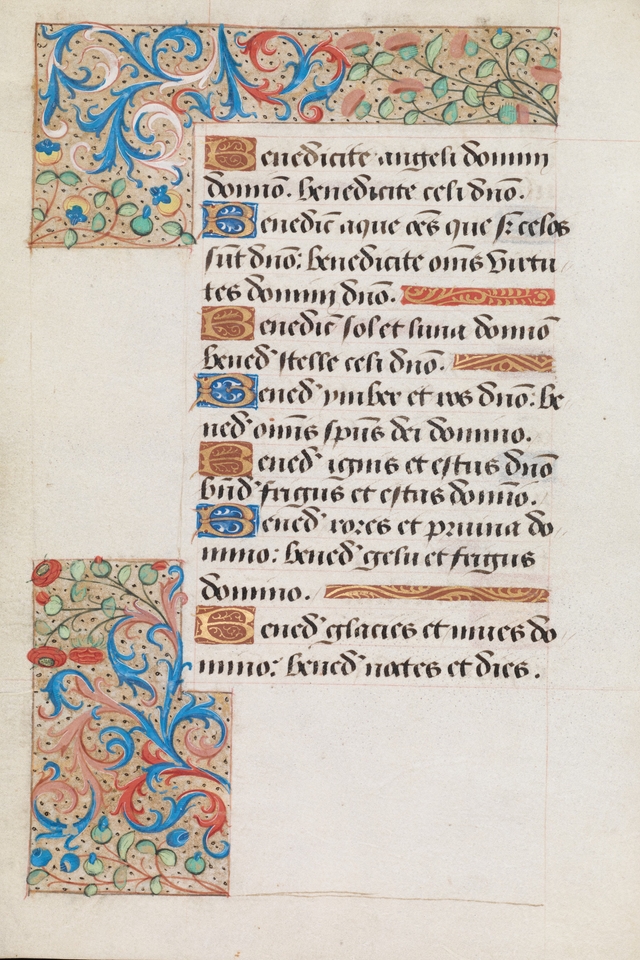 Benedicite angeli domini
domino. benedicite celi dño.
Benedic̄ aque oēs que sr̄ celos
sūt dño: benedicite om̄s virtu
tes domini dño.
Benedic̄ sol et luna domino
bened' stelle celi dño.
Bened' ymber et ros dño: be
ned' om̄s spūs dei domino.
Bened' ignis et estus dño
bñd' frigus et estas domino.
Bened' rores et pruina do
mino: bened' gelu et frigus
domino.
Bened' glacies et niues do
mino: bened' noctes et dies.